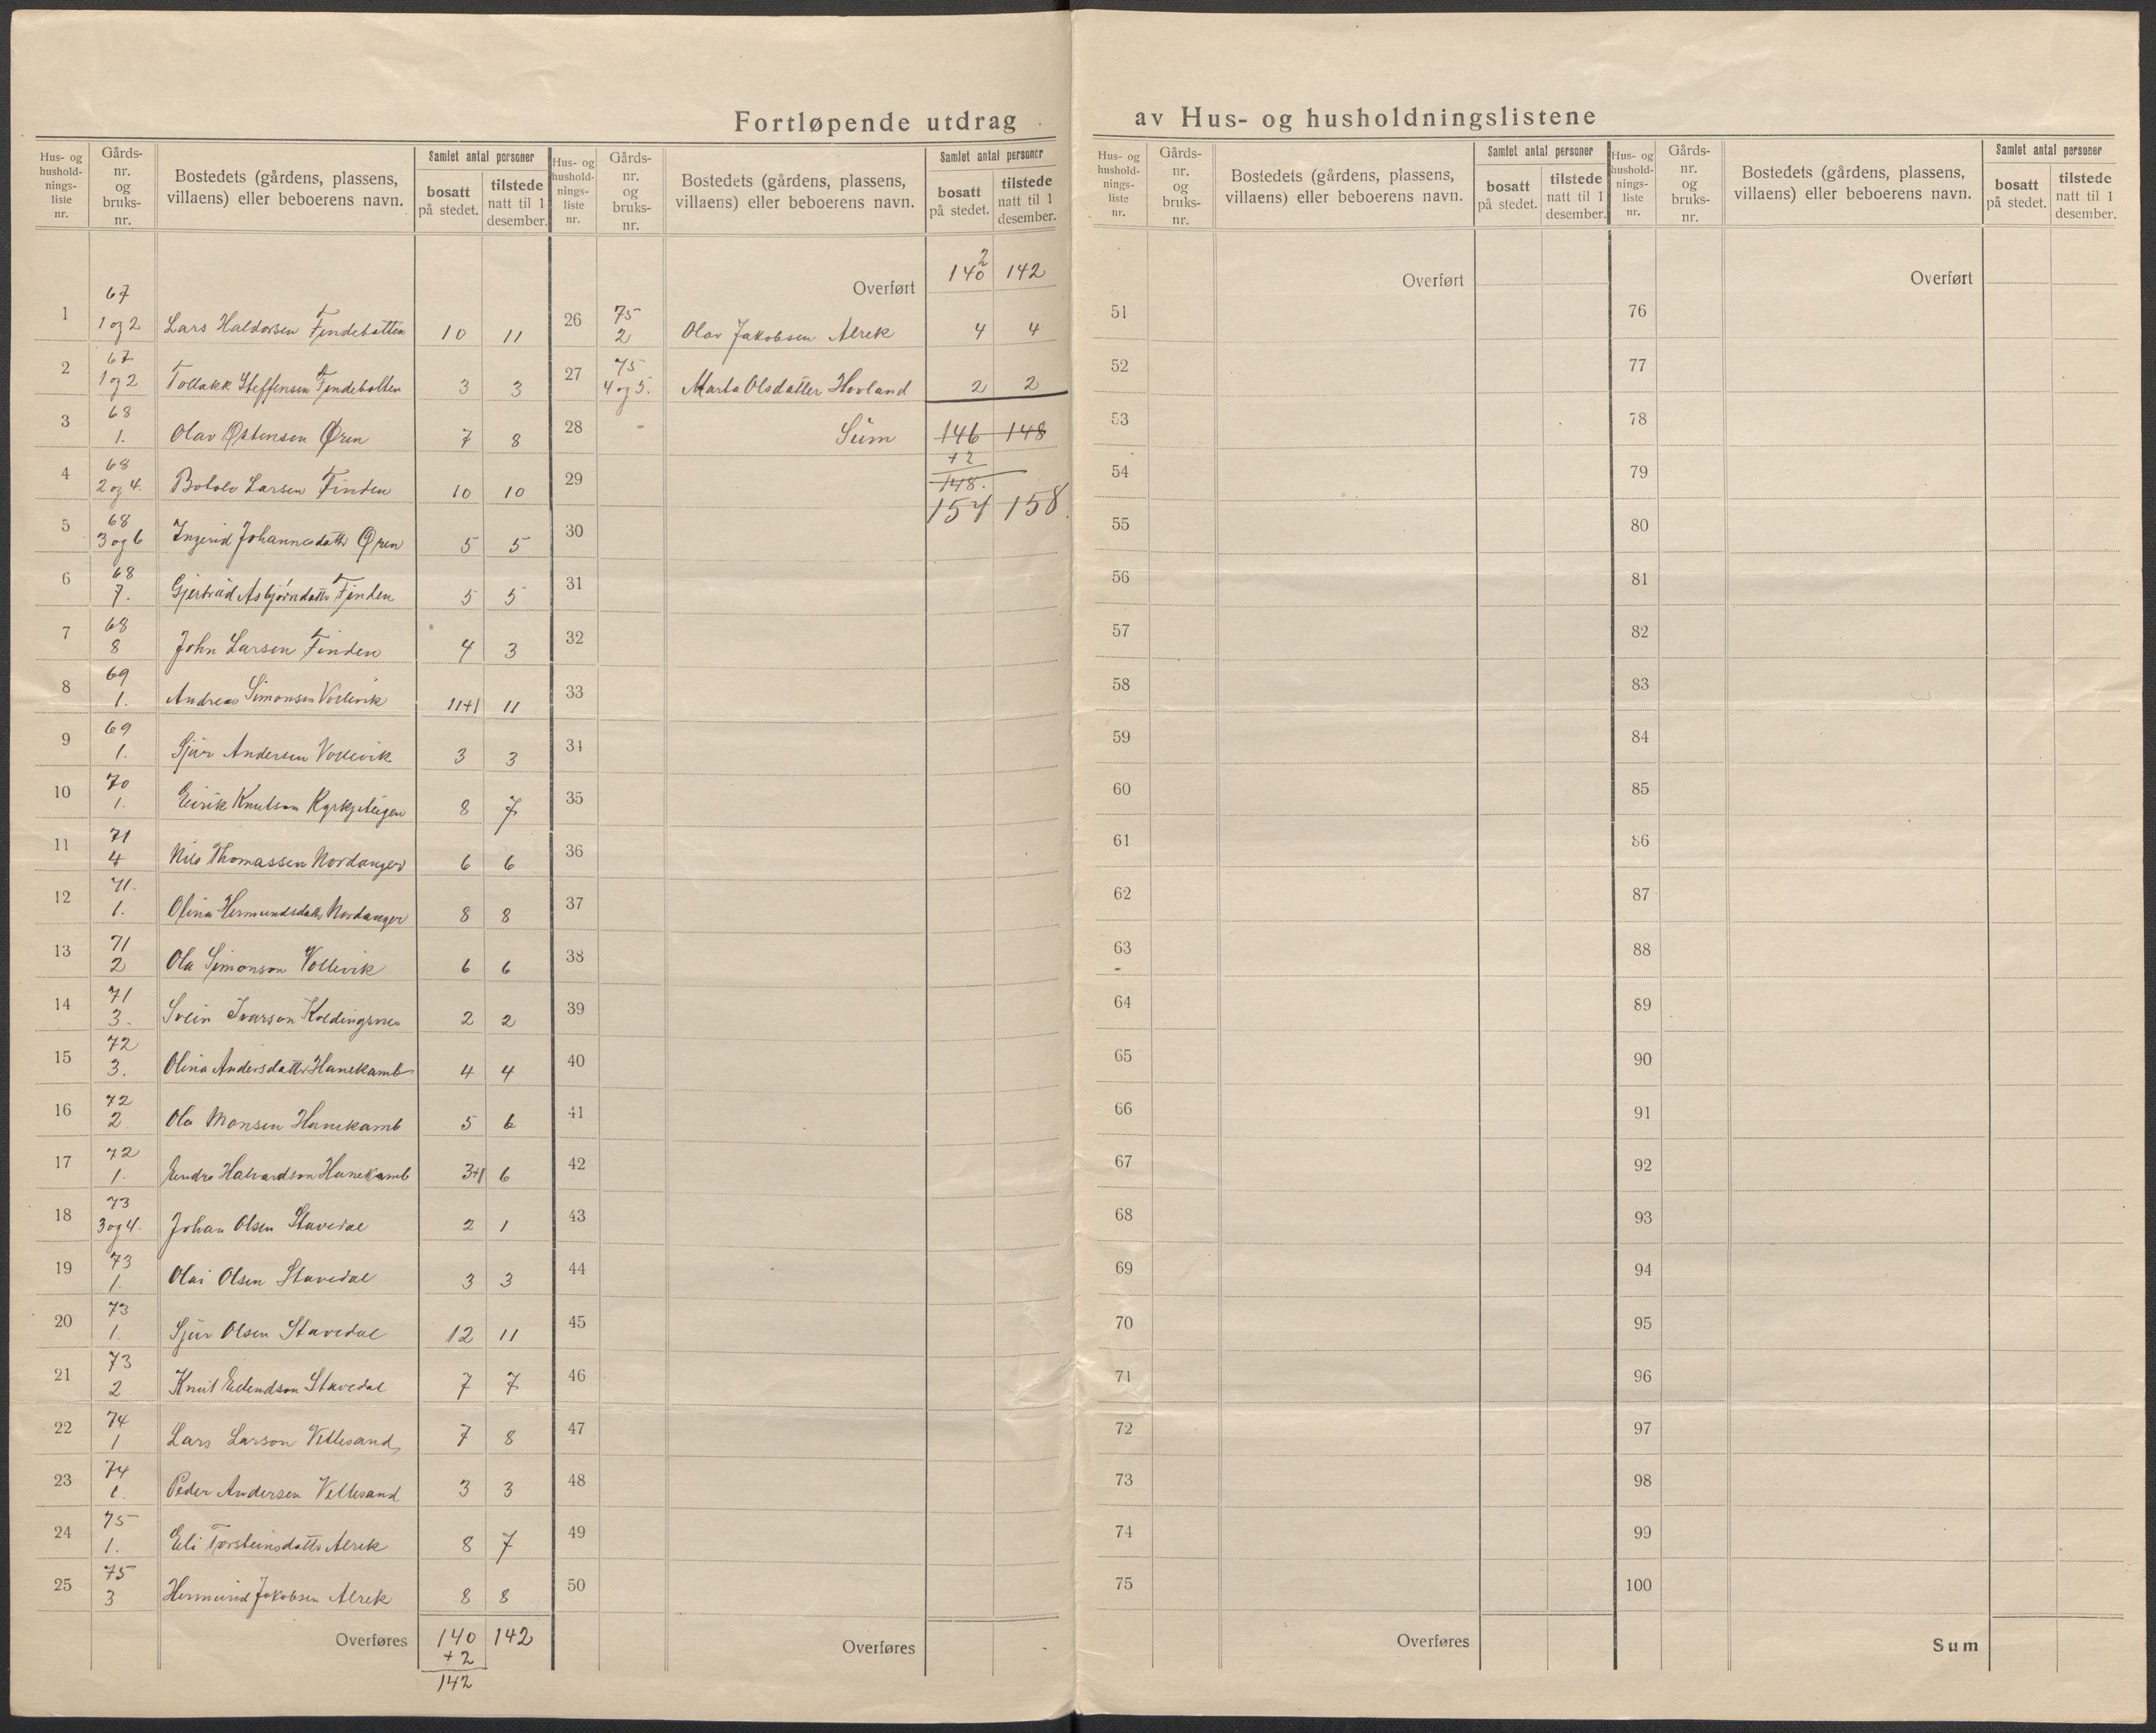 Fortløpende utdrag av Hus- og husholdningslistene
Hus- og hushold-nings-liste nr. Gårds-nr. og bruks-nr. Bostedets (gårdens, plassens, villaens) eller beboerens navn. Samlet antal personer bosatt på stedet. tilstede natt til 1 desember.
1 67 1 og 2 Lars Haldorsen Findebotten 10 11
2 67 1 og 2 Tollakk Steffensen Findebotten 3 3
3 68 1. Olav Østensen Øren 7 8
4 68 2 og 4. Botolv Larsen Finden 10 10
5 68 3 og 6 Ingerid Johannesdattr Øren 5 5
6 68 7. Gjertrud Asbjørndattr Finden 5 5
7 68 8 John Larsen Finden 4 3
8 69 1. Andreas Simonsen Vollevik 11+1 11
9 69 1. Sjur Andersen Vollevik 3 3
10 70 1. Eirik Knutson Kyrkjeteigen 8 7
11 71 4 Nils Thomassen Nordanger 6 6
12 71. 1. Olina Hermundsdattr Nordanger 8 8
13 71 2 Ola Simonson Vollevik 6 6
14 71 3. Svein Ivarson Koldingsnes 2 2
15 72 3. Olina Andersdattr Hanekamb 4 4
16 72 2. Ola Monsen Hanekamb 5 6
17 72 1. Endre Halvardson Hanekamb 3+1 6
18 73 3 og 4. Johan Olsen Stavedal 2 1
19 73 1. Olai Olsen Stavedal 3 3
20 73 1. Sjur Olsen Stavedal 12 11
21 73 2 Knut Erlendson Stavedal 7 7
22 74 1 Lars Larson Vellesand 7 8
23 74 1. Peder Andersen Vellesand 3 3
24 75 1. Eli Torsteinsdattr Alrek 8 7
25 75 3 Hermund Jakobsen Alrek 8 8
Overføres 140 142
+2
142
Hus- og hushold-nings-liste nr. Gårds-nr. og bruks-nr. Bostedets (gårdens, plassens, villaens) eller beboerens navn. Samlet antal personer bosatt på stedet. tilstede natt til 1 desember.
Overført 140 2 142
26 75 2 Olav Jakobsen Alrek 4 4
27 75 4 og 5. Marta Olsdatter Hovland 2 2
28 Sum 146 148
+2
29 148.
157 158
30
31
32
33
34
35
36
37
38
39
40
41
42
43
44
45
46
47
48
49
50
Overføres
Hus- og hushold-nings-liste nr. Gårds-nr. og bruks-nr. Bostedets (gårdens, plassens, villaens) eller beboerens navn. Samlet antal personer bosatt på stedet. tilstede natt til 1 desember.
Overført
51
52
53
54
55
56
57
58
59
60
61
62
63
64
65
66
67
68
69
70
71
72
73
74
75
Overføres
Hus- og hushold-nings-liste nr. Gårds-nr. og bruks-nr. Bostedets (gårdens, plassens, villaens) eller beboerens navn. Samlet antal personer bosatt på stedet. tilstede natt til 1 desember.
Overført
76
77
78
79
80
81
82
83
84
85
86
87
88
89
90
91
92
93
94
95
96
97
98
99
100
Sum